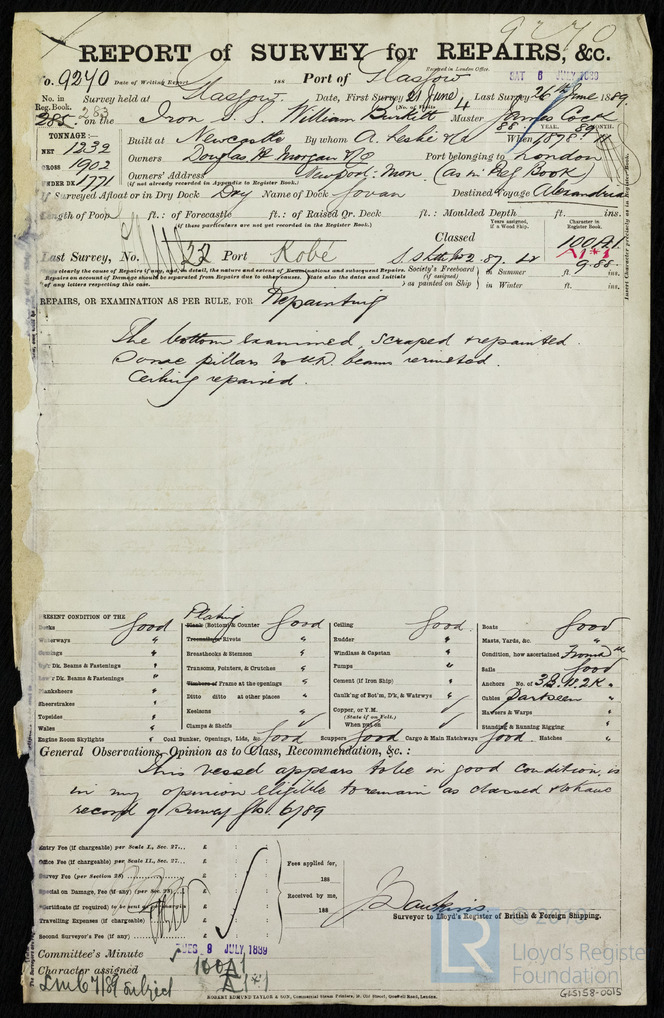 9270
REPORT of SURVEY for REPAIRS, &c.
Received in London Office
No. 9270 Date of Writing Report 188 Port of Glasgow SAT 6 JULY 1889
No. in Reg. Book. Survey held at Glasgow. Date, First Survey 21 June Last Survey 26th June 1889.
(No. of Visits 4
285. 283 on the Iron S. S. William Burkitt Master James Cock
TONNAGE:— YEAR. MONTH.
NET 1232 Built at Newcastle By whom A. Leslie & Co When 1878
GROSS 1902 Owners Douglas H Morgan & Co Port belonging to London
UNDER DK 1771 Owners' Address Newport: Mon (as in Reg Book)
(if not already recorded in Appendix to Register Book.)
If Surveyed Afloat or in Dry Dock Dry Name of Dock Govan Destined Voyage Alexandria
Length of Poop ft.: of Forecastle ft.: of Raised Qr. Deck ft.: Moulded Depth ft. ins.
(if these particulars are not yet recorded in the Register Book.)
Years assigned, if a Wood Ship. Character in Register Book.
Classed 100A1
Last Survey, No. 22 Port Kobé 9.88
State clearly the cause of Repairs if any, and, in detail, the nature and extent of Examinations and subsequent Repairs.
Repairs on account of Damage should be separated from Repairs due to other causes. State also the dates and Initials
of any letters respecting this case.
Society's Freeboard (if assigned) as painted on Ship in Summer ft. ins.
in Winter ft. ins.
Insert Character precisely as in Register Book.
REPAIRS, OR EXAMINATION AS PER RULE, FOR Repainting
The bottom examined, scraped & repainted.
Some pillars to U.D. beams reriveted.
Ceiling repaired.
PRESENT CONDITION OF THE
Decks Good
Waterways "
Comings "
Upr Dk. Beams & Fastenings "
Lowr Dk. Beams & Fastenings "
Planksheers "
Sheerstrakes "
Topsides "
Wales "
Engine Room Skylights "
Plating
Plank (Bottom) & Counter Good
Treenails or Rivets "
Breasthooks & Stemson "
Transoms, Pointers, & Crutches "
Timbers or Frame at the openings "
Ditto ditto at other places "
Keelsons "
Clamps & Shelfs
Coal Bunker, Openings, Lids, &c. Good
Ceiling Good
Rudder "
Windlass & Capstan "
Pumps "
Cement (if Iron Ship) "
Caulk'ng of Bot'm, D'k, & Watrwys
Copper, or Y.M.
(State if on Felt.)
When put on
Scuppers Good
Cargo & Main Hatchways Good
Boats Good
Masts, Yards, &c. "
Condition, how ascertained From dk
Sails Good
Anchors No. of 3B. 1S. 2K "
Cables Part seen
Hawsers & Warps "
Standing & Running Rigging "
Hatches "
General Observations, Opinion as to Class, Recommendation, &c.:
This vessel appears to be in good condition, is
in my opinion eligible to remain as classed & to have
record of Survey 6/89
Entry Fee (if chargeable) per Scale I., Sec. 27... £ : :
Office Fee (if chargeable) per Scale II., Sec. 27... £ : :
Survey Fee (per Section 28) £ : :
Special on Damage, Fee (if any) (per Sec. 28) £ : :
Certificate (if required) £ : :
Travelling Expenses (if chargeable) £ : :
Second Surveyor's Fee (if any) £ : :
Fees applied for,
188
Received by me,
188
J. Dawkins
Surveyor to Lloyd's Register of British & Foreign Shipping.
Committee's Minute TUES 9 JULY 1889
Character assigned 100A1
LMC 6/89 subject
ROBERT EDMUND TAYLOR & SON, Commercial Steam Printers, 19, Old Street, Goswell Road, London.
LR
© 2019
Lloyd's Register
Foundation
GLS158-0015